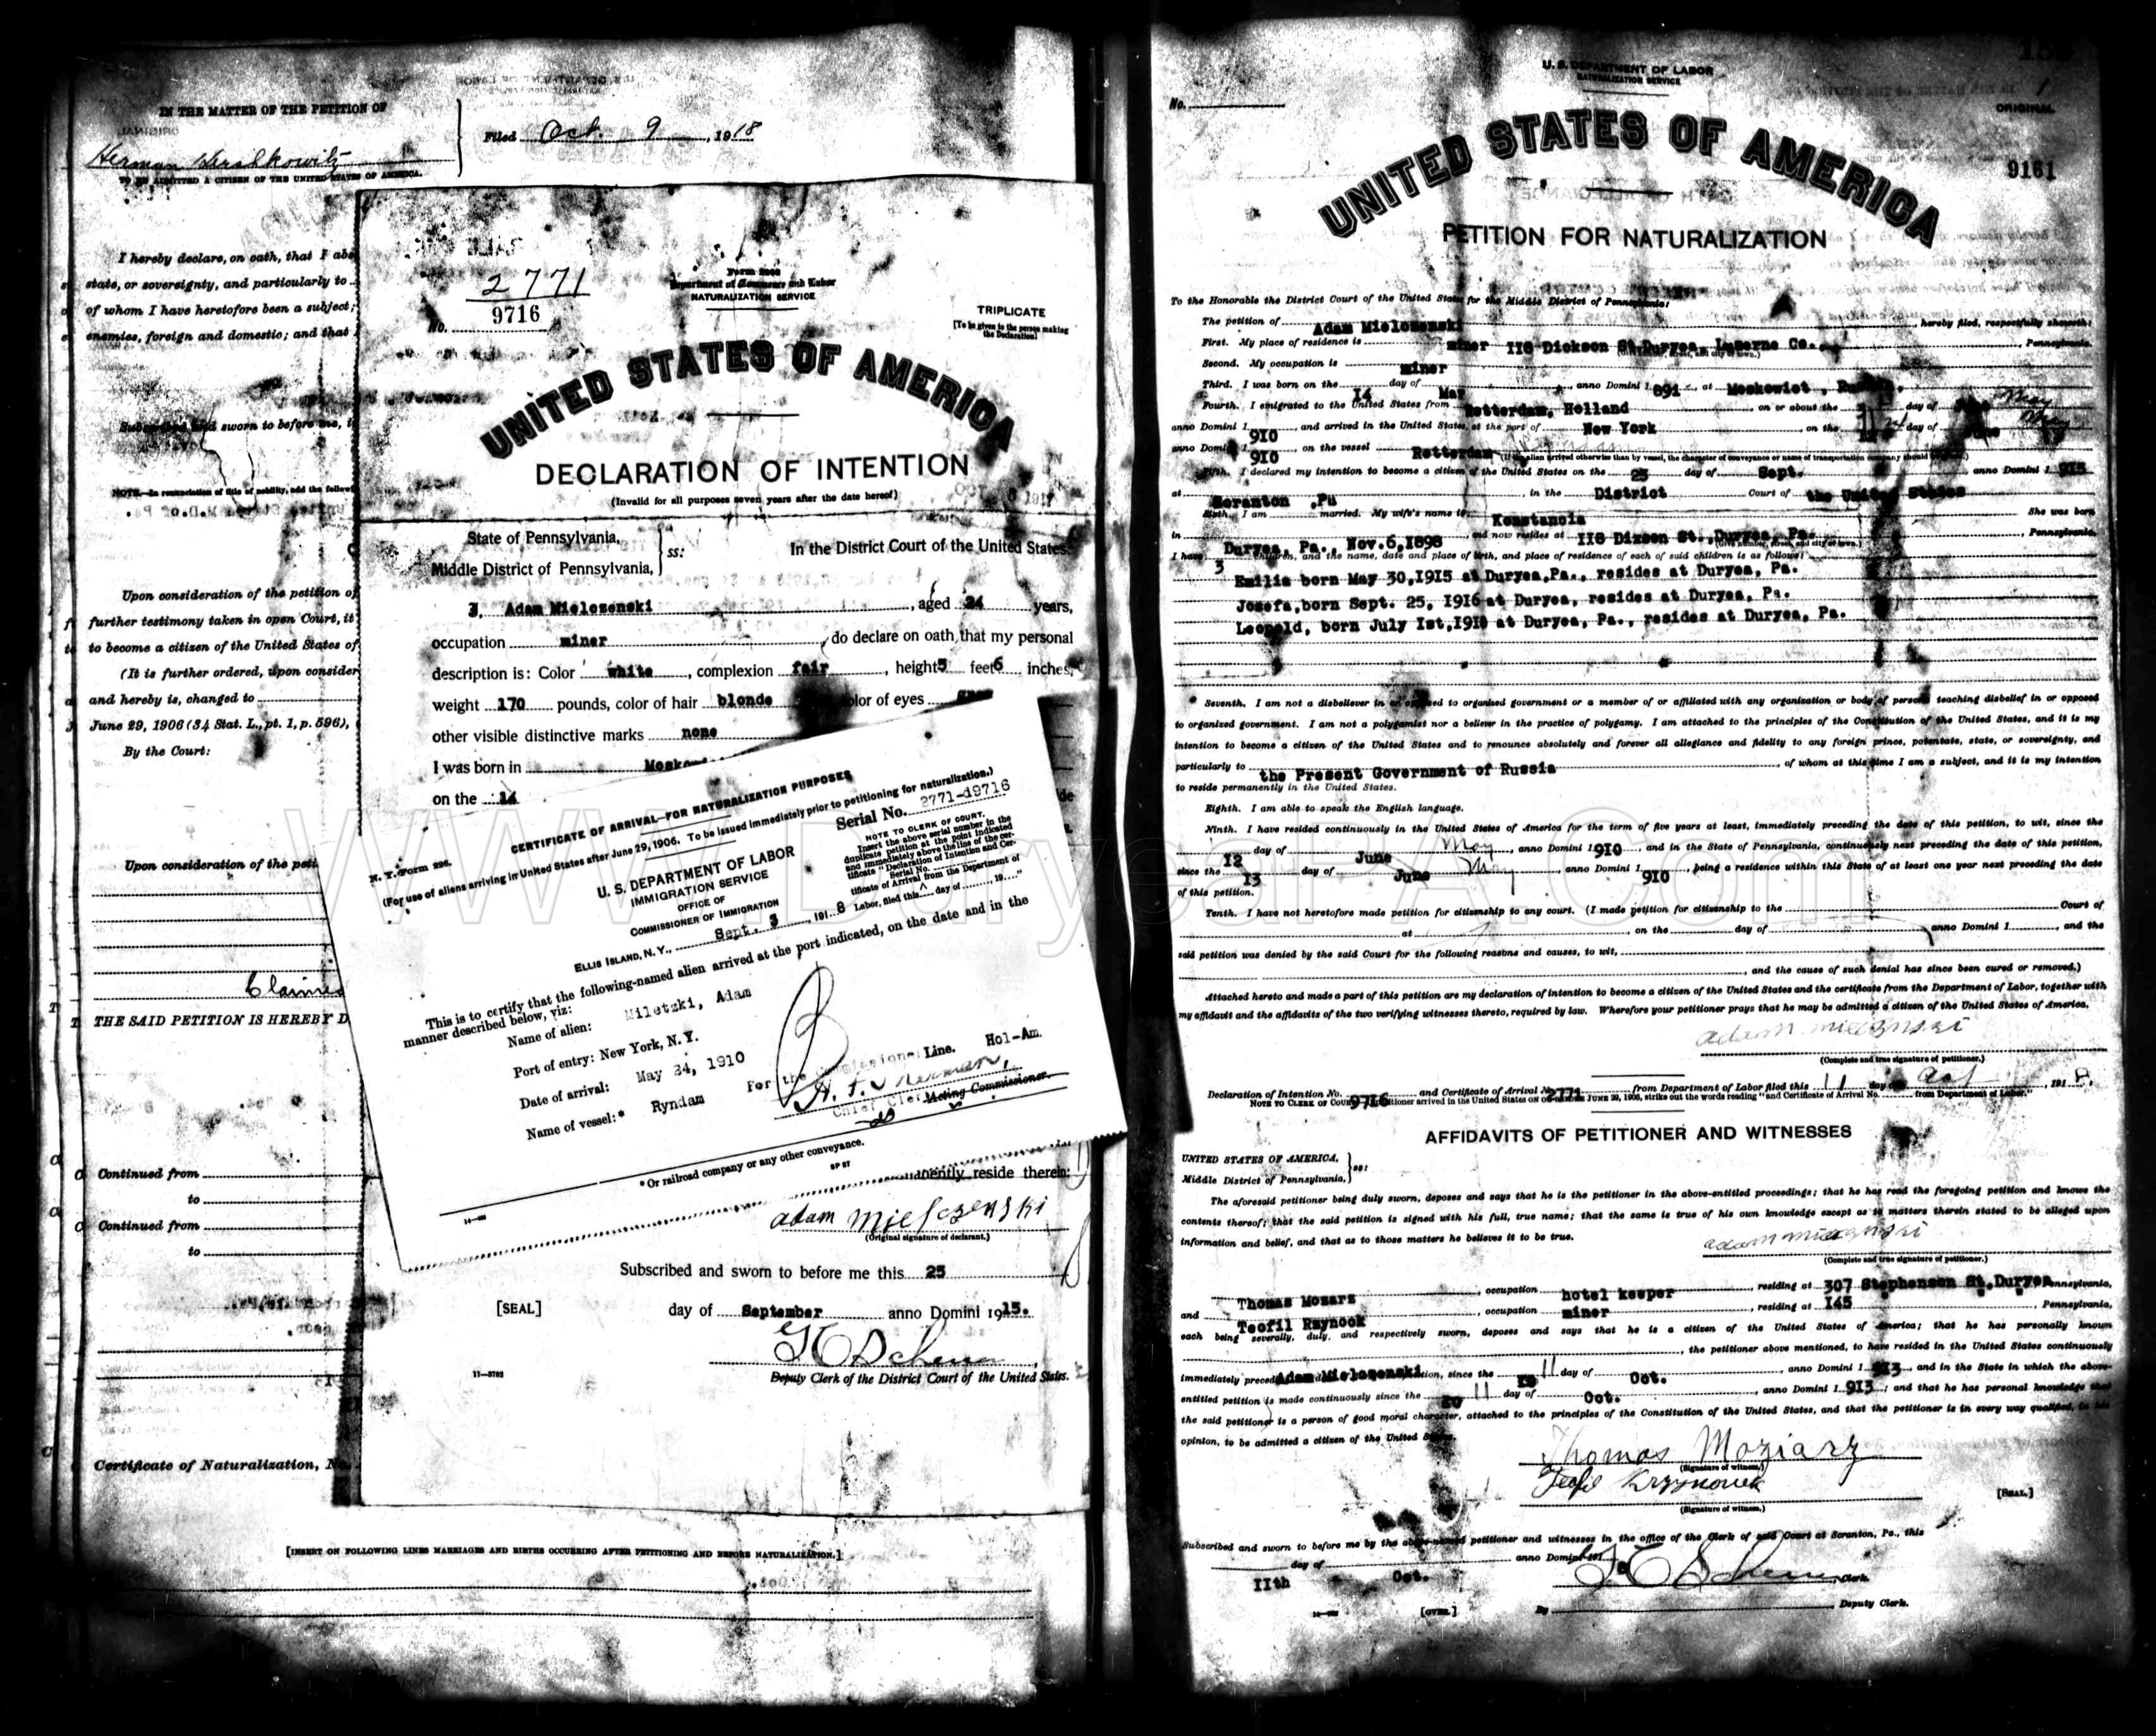 IN THE MATTER OF THE PETITION OF
Herman Hershkowitz
TO BE ADMITTED A CITIZEN OF THE UNITED STATES OF AMERICA.
Filed Oct. 9, 1918
I hereby declare, on oath, that I
state, or sovereignty, and particularly to
of whom I have heretofore been a subject;
enemies, foreign and domestic; and that
Subscribed and sworn to before me,
NOTE.—In renunciation of title of nobility, add the
Upon consideration of the petition of
further testimony taken in open Court, it
to become a citizen of the United States of
(It is further ordered, upon
and hereby is, changed to
June 29, 1906 (34 Stat. L., pt. 1, p. 596),
By the Court:
Upon consideration of the
THE SAID PETITION IS HEREBY
Continued from
to
Continued from
to
Certificate of Naturalization,
[INSERT ON FOLLOWING LINES MARRIAGES AND BIRTHS OCCURRING AFTER PETITIONING AND BEFORE NATURALIZATION.]
2771
No. 9716
Department of Commerce and Labor
NATURALIZATION SERVICE
TRIPLICATE
[To be given to the person making
the Declaration]
UNITED STATES OF AMERICA
DECLARATION OF INTENTION
(Invalid for all purposes seven years after the date hereof)
State of Pennsylvania,
Middle District of Pennsylvania,
ss:
In the District Court of the United States.
I, Adam Mielozenski, aged 24 years,
occupation miner, do declare on oath that my personal
description is: Color white, complexion fair, height 5 feet 6 inches,
weight 170 pounds, color of hair blonde color of eyes
other visible distinctive marks none
I was born in
on the 14
N. Y. Form 226.
CERTIFICATE OF ARRIVAL—FOR NATURALIZATION PURPOSES
(For use of aliens arriving in United States after June 29, 1906. To be issued immediately prior to petitioning for naturalization.)
Serial No. 2771-19716
U. S. DEPARTMENT OF LABOR
IMMIGRATION SERVICE
OFFICE OF
COMMISSIONER OF IMMIGRATION
NOTE TO CLERK OF COURT.
Insert the above serial number in the
duplicate petition at the point indicated
and immediately above the line of the cer-
tificate "Declaration of Intention and Cer-
Serial No.
tificate of Arrival from the Department of
Labor, filed this day of , 19 ."
ELLIS ISLAND, N. Y., Sept. 3, 1918
This is to certify that the following-named alien arrived at the port indicated, on the date and in the
manner described below, viz:
Name of alien: Miletzki, Adam
Port of entry: New York, N. Y.
Date of arrival: May 24, 1910
Name of vessel:* Ryndam Line. Hol-Am.
For the Commissioner
Acting Commissioner.
*Or railroad company or any other conveyance.
reside therein:
adam mielczenski
(Original signature of declarant.)
Subscribed and sworn to before me this 25
[SEAL] day of September anno Domini 1915.
Deputy Clerk of the District Court of the United States.
U. S. DEPARTMENT OF LABOR
NATURALIZATION SERVICE
No.
ORIGINAL
9161
UNITED STATES OF AMERICA
PETITION FOR NATURALIZATION
To the Honorable the District Court of the United States for the Middle District of Pennsylvania:
The petition of Adam Mielozenski, hereby filed, respectfully showeth:
First. My place of residence is miner 118 Dickson St Duryea, Luzerne Co., Pennsylvania.
Second. My occupation is miner
Third. I was born on the 14 day of May, anno Domini 1891, at Moskowiet, Russia
Fourth. I emigrated to the United States from Rotterdam, Holland on or about the day of May
anno Domini 1910 and arrived in the United States at the port of New York on the day of May
anno Domini 1910 on the vessel Rotterdam
Fifth. I declared my intention to become a citizen of the United States on the 25 day of Sept. anno Domini 1915
at Scranton, Pa in the District Court of the United States
Sixth. I am married. My wife's name is Konstancia She was born
in Duryea, Pa., Nov. 6, 1898 and now resides at 118 Dixson St., Duryea, Pa. Pennsylvania.
I have 3 children, and the name, date and place of birth, and place of residence of each of said children is as follows:
Emilia born May 30, 1915 at Duryea, Pa., resides at Duryea, Pa.
Josefa, born Sept. 25, 1916 at Duryea, resides at Duryea, Pa.
Leopold, born July 1st, 1918 at Duryea, Pa., resides at Duryea, Pa.
Seventh. I am not a disbeliever in or opposed to organized government or a member of or affiliated with any organization or body of persons teaching disbelief in or opposed
to organized government. I am not a polygamist nor a believer in the practice of polygamy. I am attached to the principles of the Constitution of the United States, and it is my
intention to become a citizen of the United States and to renounce absolutely and forever all allegiance and fidelity to any foreign prince, potentate, state, or sovereignty, and
particularly to the Present Government of Russia of whom at this time I am a subject, and it is my intention
to reside permanently in the United States.
Eighth. I am able to speak the English language.
Ninth. I have resided continuously in the United States of America for the term of five years at least, immediately preceding the date of this petition, to wit, since the
12 day of June May, anno Domini 1910, and in the State of Pennsylvania, continuously next preceding the date of this petition,
since the 13 day of June May, anno Domini 1910, being a residence within this State of at least one year next preceding the date
of this petition.
Tenth. I have not heretofore made petition for citizenship to any court. (I made petition for citizenship to the Court of
at on the day of anno Domini 1, and the
said petition was denied by the said Court for the following reasons and causes, to wit,
, and the cause of such denial has since been cured or removed.)
Attached hereto and made a part of this petition are my declaration of intention to become a citizen of the United States and the certificate from the Department of Labor, together with
my affidavit and the affidavits of the two verifying witnesses thereto, required by law. Wherefore your petitioner prays that he may be admitted a citizen of the United States of America.
(Complete and true signature of petitioner.)
Declaration of Intention No. 9716 and Certificate of Arrival No. 2771 from Department of Labor filed this 11 day of Oct, 1918.
AFFIDAVITS OF PETITIONER AND WITNESSES
UNITED STATES OF AMERICA,
Middle District of Pennsylvania,
ss:
The aforesaid petitioner being duly sworn, deposes and says that he is the petitioner in the above-entitled proceedings; that he has read the foregoing petition and knows the
contents thereof; that the said petition is signed with his full, true name; that the same is true of his own knowledge except as to matters therein stated to be alleged upon
information and belief, and that as to those matters he believes it to be true.
(Complete and true signature of petitioner.)
Thomas Mozarz, occupation hotel keeper, residing at 307 Stephenson St. Duryea Pennsylvania,
and Teofil Raynock, occupation miner, residing at 145 Pennsylvania,
each being severally, duly, and respectively sworn, deposes and says that he is a citizen of the United States of America; that he has personally known
Adam Mielozenski, the petitioner above mentioned, to have resided in the United States continuously
immediately preceding since the 11 day of Oct. anno Domini 1913, and in the State in which the above-
entitled petition is made continuously since the 11 day of Oct., anno Domini 1913; and that he has personal knowledge that
the said petitioner is a person of good moral character, attached to the principles of the Constitution of the United States, and that the petitioner is in every way qualified, in his
opinion, to be admitted a citizen of the United States.
Thomas Moziarz
(Signature of witness.)
Teofil Krzynowek
(Signature of witness.)
[SEAL.]
Subscribed and sworn to before me by the above-named petitioner and witnesses in the office of the Clerk of said Court at Scranton, Pa., this
11th day of Oct. anno Domini 191
Clerk.
[OVER.]
By Deputy Clerk.
www.DuryeaPA.Com